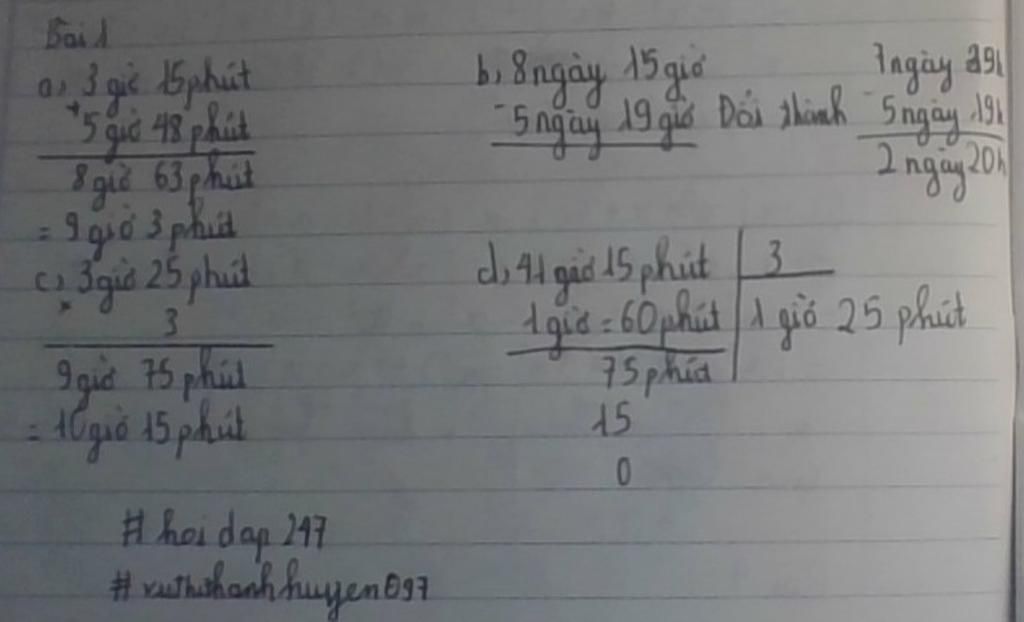 Bài 1
a, 3 giờ 15 phút
+ 5 giờ 48 phút
8 giờ 63 phút
= 9 giờ 3 phút
b, 8 ngày 15 giờ
- 5 ngày 19 giờ Đổi thành
7 ngày 39h
- 5 ngày 19h
2 ngày 20h
c, 3 giờ 25 phút
× 3
9 giờ 75 phút
= 10 giờ 15 phút
d, 41 giờ 15 phút 3
1 giờ = 60 phút 1 giờ 25 phút
75 phút
15
0
# hoi dap 247